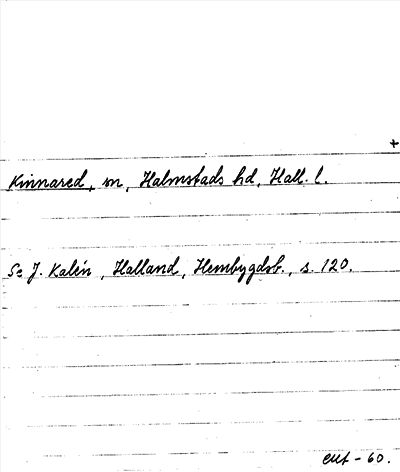 +
Kinnared, sn, Halmstads hd, Hall. l.
Se J. Kalén, Halland, Hembygdsb., s. 120.
- 60.